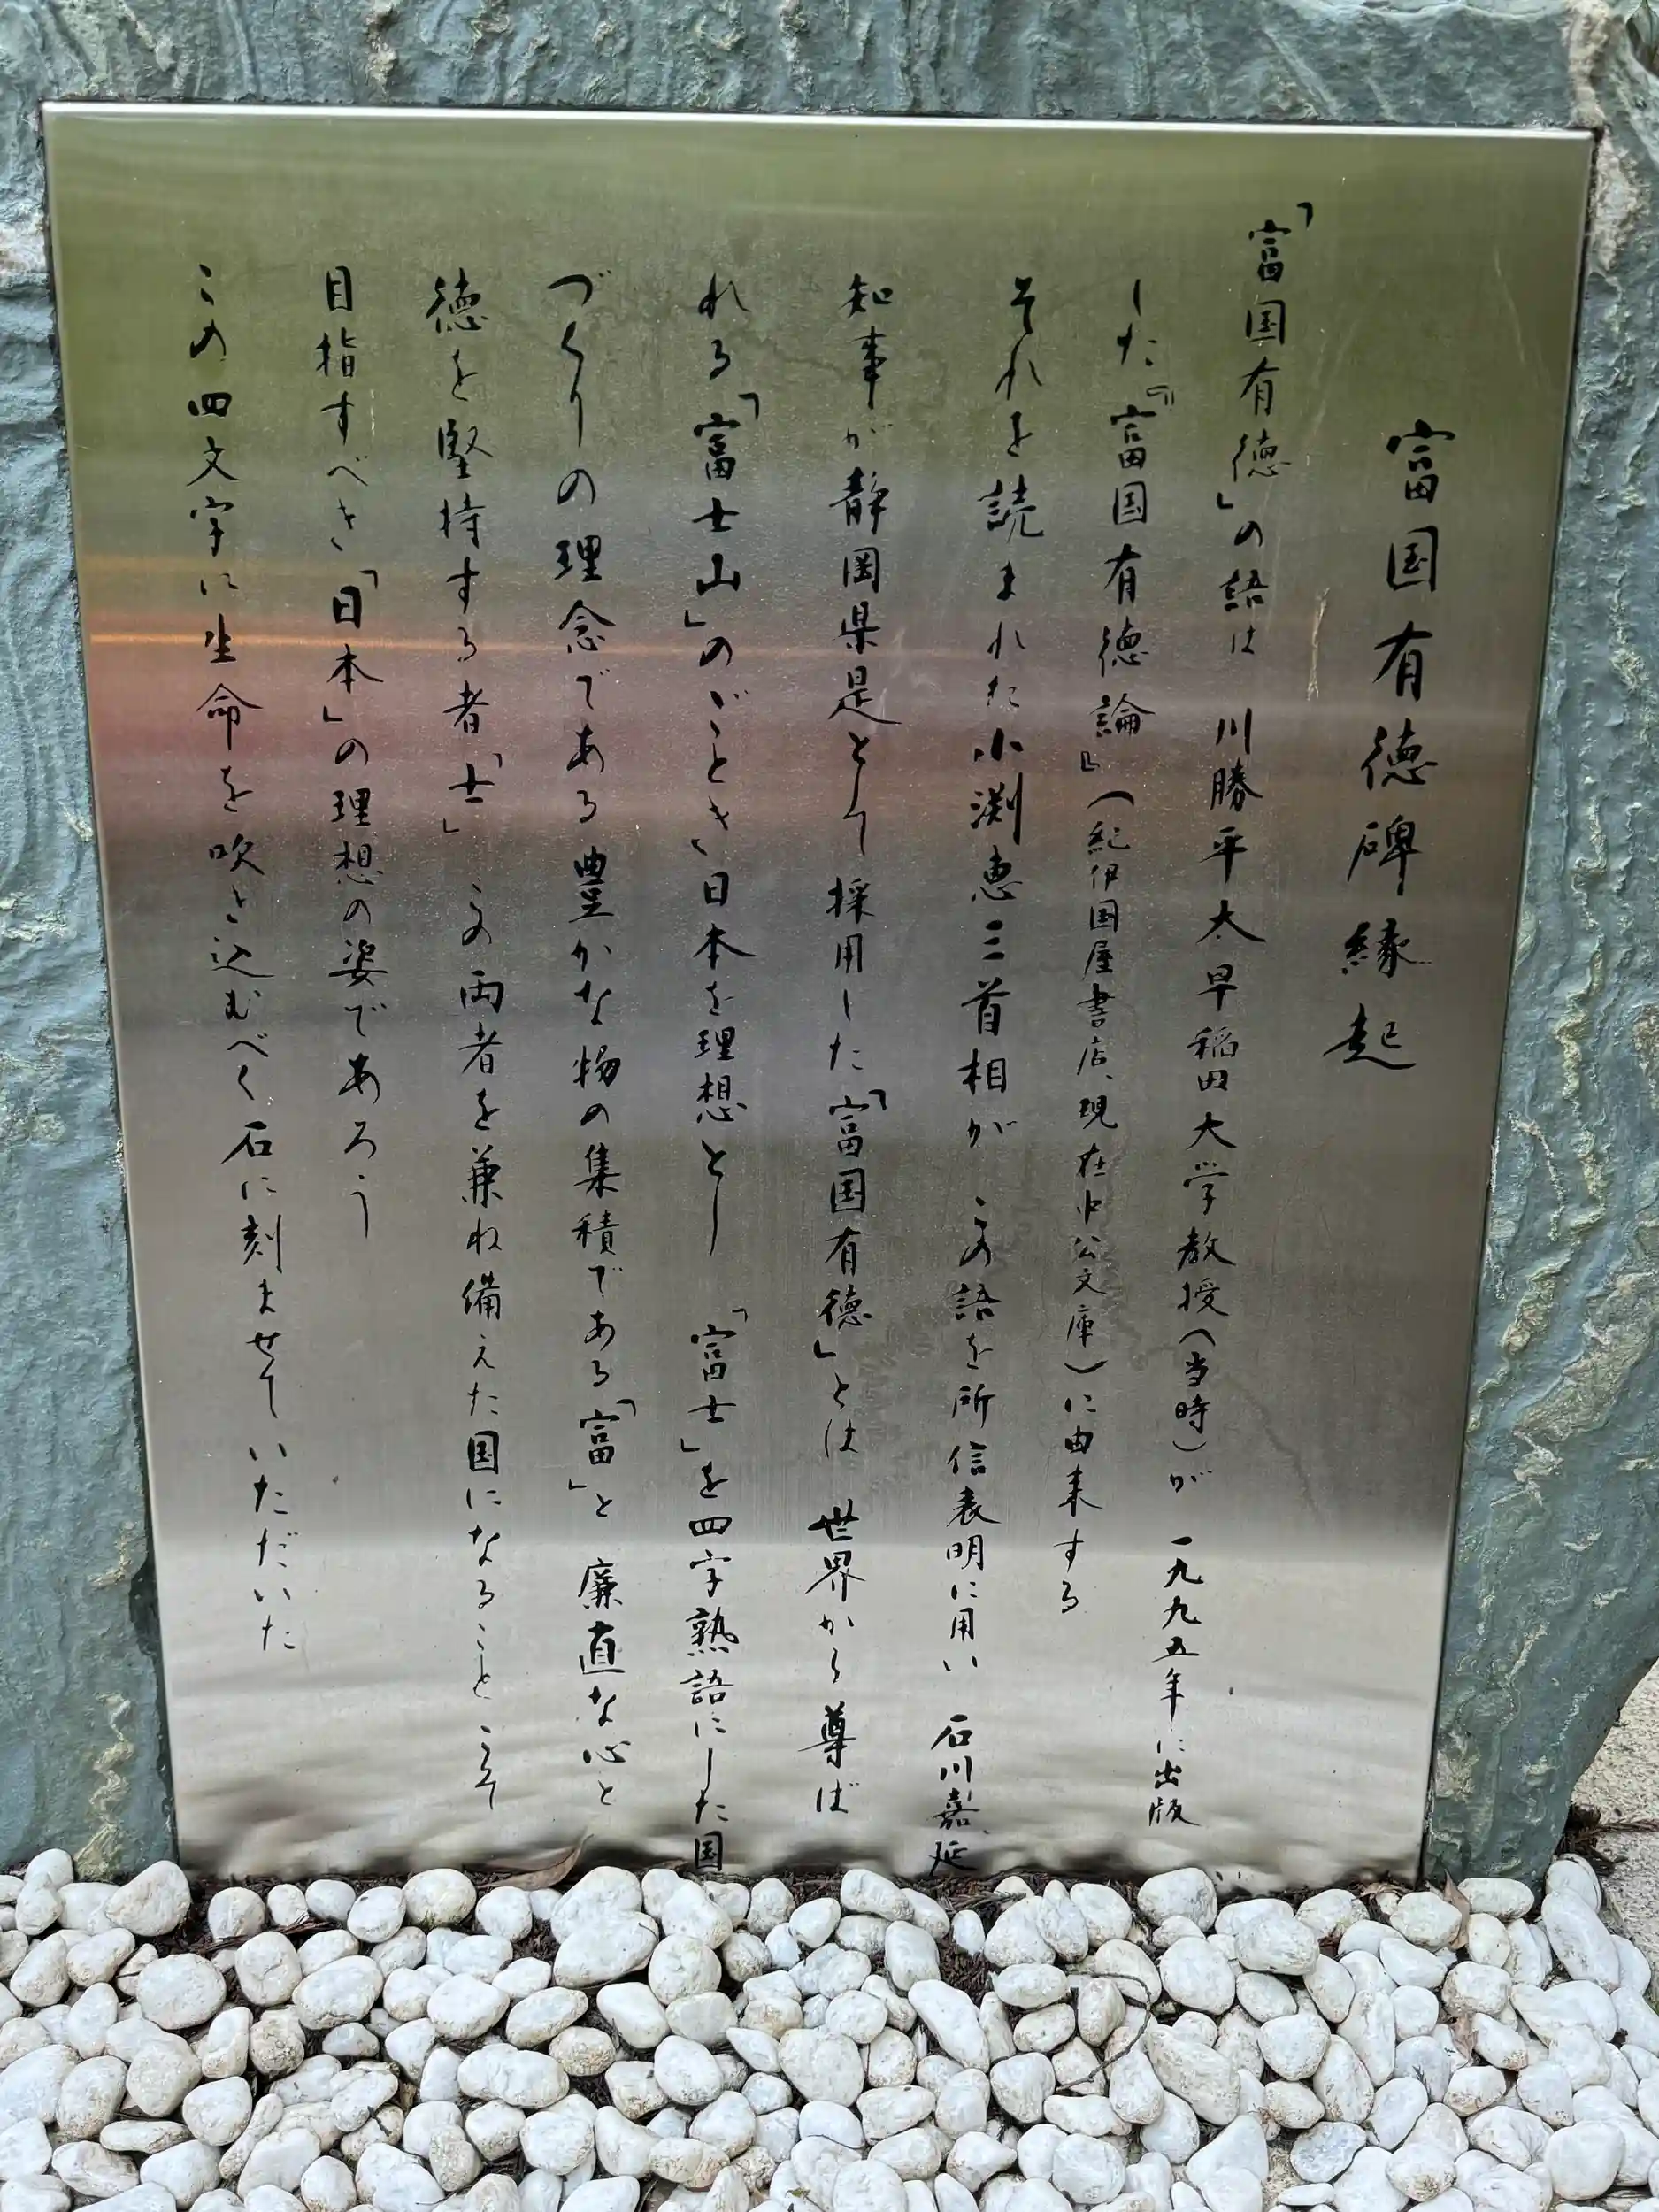 富国有徳碑縁起
「富国有徳」の語は 川勝平太早稲田大学教授(当時)が 一九九五年に出版
した『富国有徳論』(紀伊国屋書店、現在中公文庫)に由来する
それを読まれた小渕恵三首相が この語を所信表明に用い 石川嘉延
知事が静岡県是として採用した「富国有徳」とは 世界から尊ば
れる「富士山」のごとき日本を理想とし 「富士」を四字熟語にした国
づくりの理念である豊かな物の集積である「富」と 廉直な心と
徳を堅持する者「士」 この両者を兼ね備えた国になることこそ
目指すべき「日本」の理想の姿であろう
この四文字に生命を吹き込むべく石に刻ませていただいた